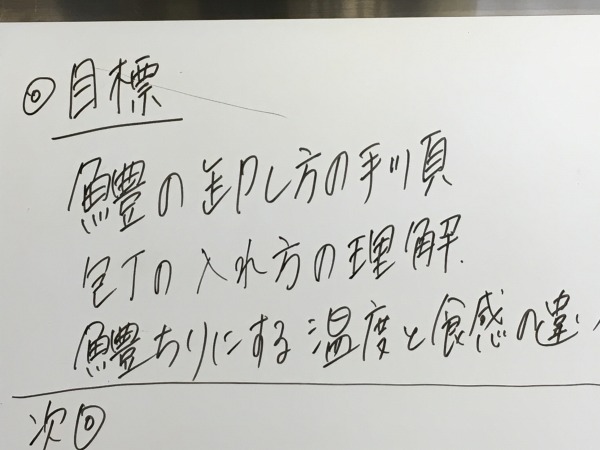 ◎目標
鱧の卸し方の手順
包丁の入れ方の理解.
鱧ちりにする温度と食感の違い
次回